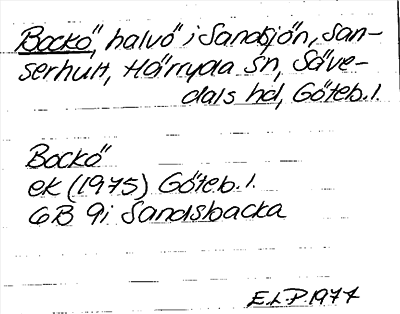 Bockö, halvö i Sandsjön, San-
serhult, Härryda sn, Säve-
dals hd, Göteb. l.
Bockö
ek (1975) Göteb. l.
6B 9i Sandsbacka
E.L.P. 1977